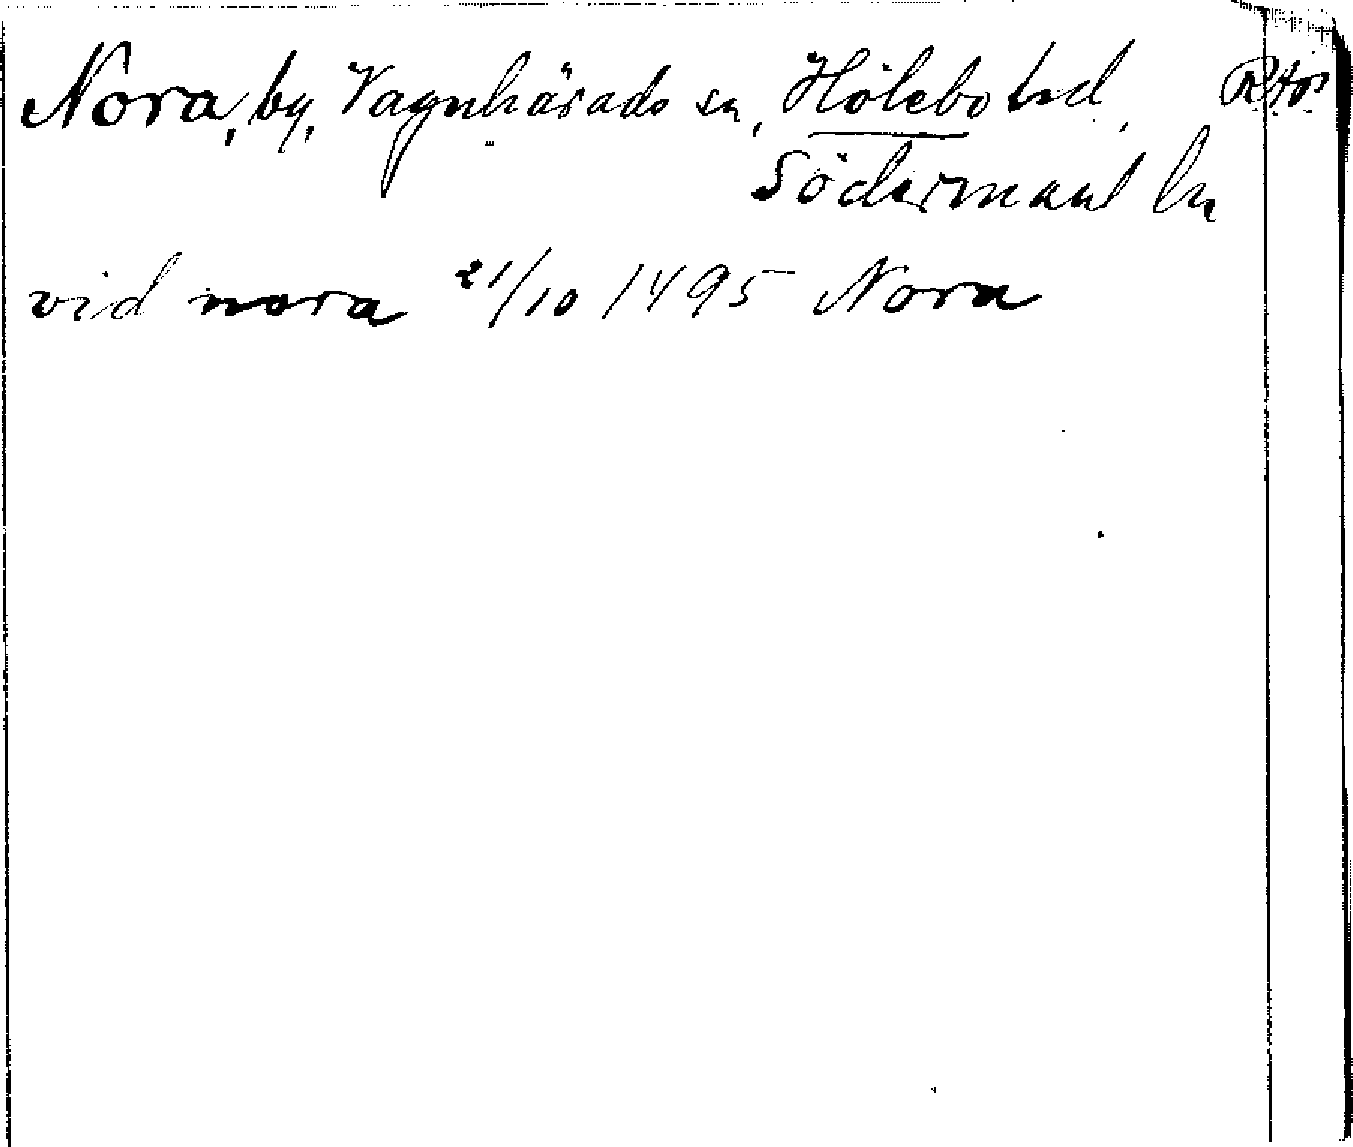 Nora, by, Vagnhärads sn, Hölebo hd,
Södermanl ln
vid nora 21/10 1495 Nora